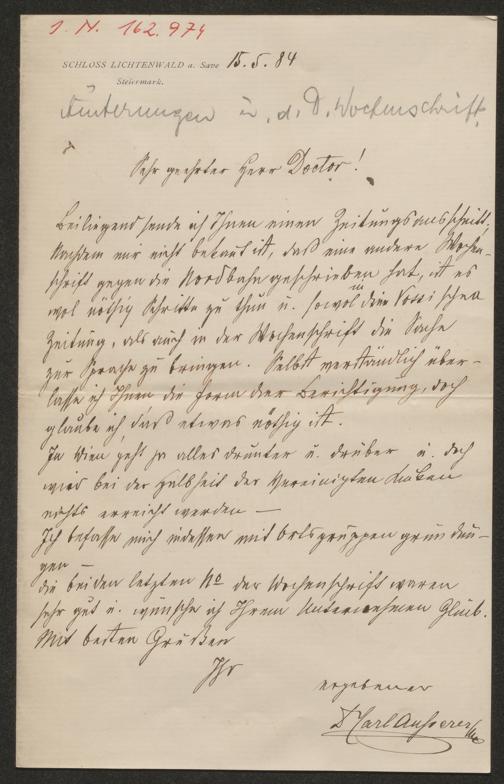 J. N. 162.974
SCHLOSS LICHTENWALD a. Save 15.5.84
Steiermark.
Äußerungen ü. d. D. Wochenschrift.
Sehr geehrter Herr Doctor!
Beiliegend sende ich Ihnen einen Zeitungsausschnitt,
Nachdem mir nicht bekant ist, daß eine andere Wochen-
schrift gegen die Nordbahn geschrieben hat, ist es
wol nöthig Schritte zu thun u. sowol in der Vossischen
Zeitung, als auch in der Wochenschrift die Sache
zur Sprache zu bringen. Selbst verständlich über-
lasse ich Ihnen die Form der Berichtigung, doch
glaube ich, daß etwas nöthig ist.
In Wien geht ja alles drunter u. drüber u. doch
wird bei der Halbheit der Vereinigten Linken
nichts erreicht werden —
Ich befasse mich indessen mit Ortsgruppen gründun-
gen —
die beiden letzten No der Wochenschrift waren
sehr gut u. wünsche ich Ihrem Unternehmen Glück.
Mit besten Grüßen
Ihr
ergebener
Dr Karl Ausserer